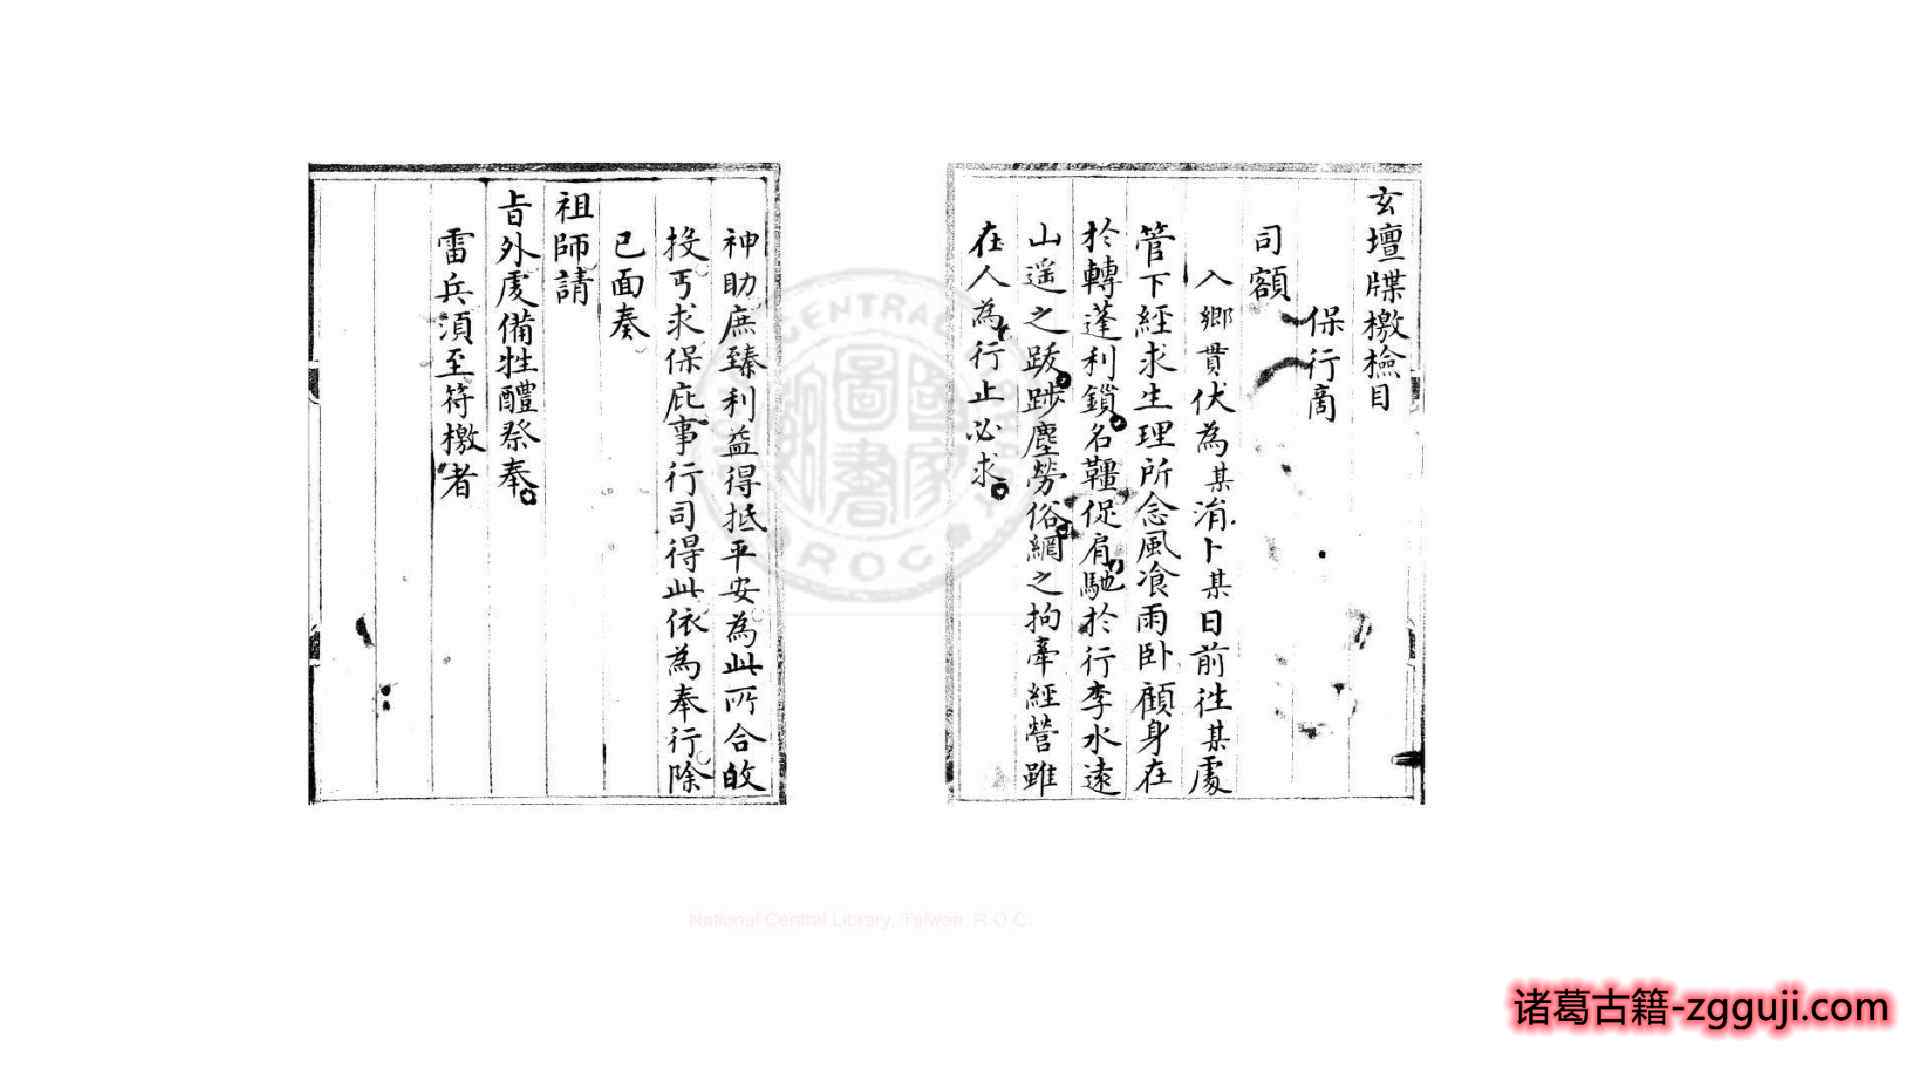 玄壇牒檄檢目
保行啇
司額
入鄉貫伏為某涓卜某日前徃某處
管下經求生理所念風飡雨卧顧身在
於轉蓬利鎖名韁促肩馳於行李水遠
山遥之跋踄塵勞俗網之拘牽經營雖
在人為行止必求
神助庶臻利益得抵平安為此所合故
投丐求保庇事行司得此依為奉行除
已面奏
祖師請
旨外虔備牲醴祭奉
雷兵須至符檄者
CENTRAL
國家圖書館
ROC
National Central Library, Taiwan, R.O.C.
诸葛古籍-zgguji.com